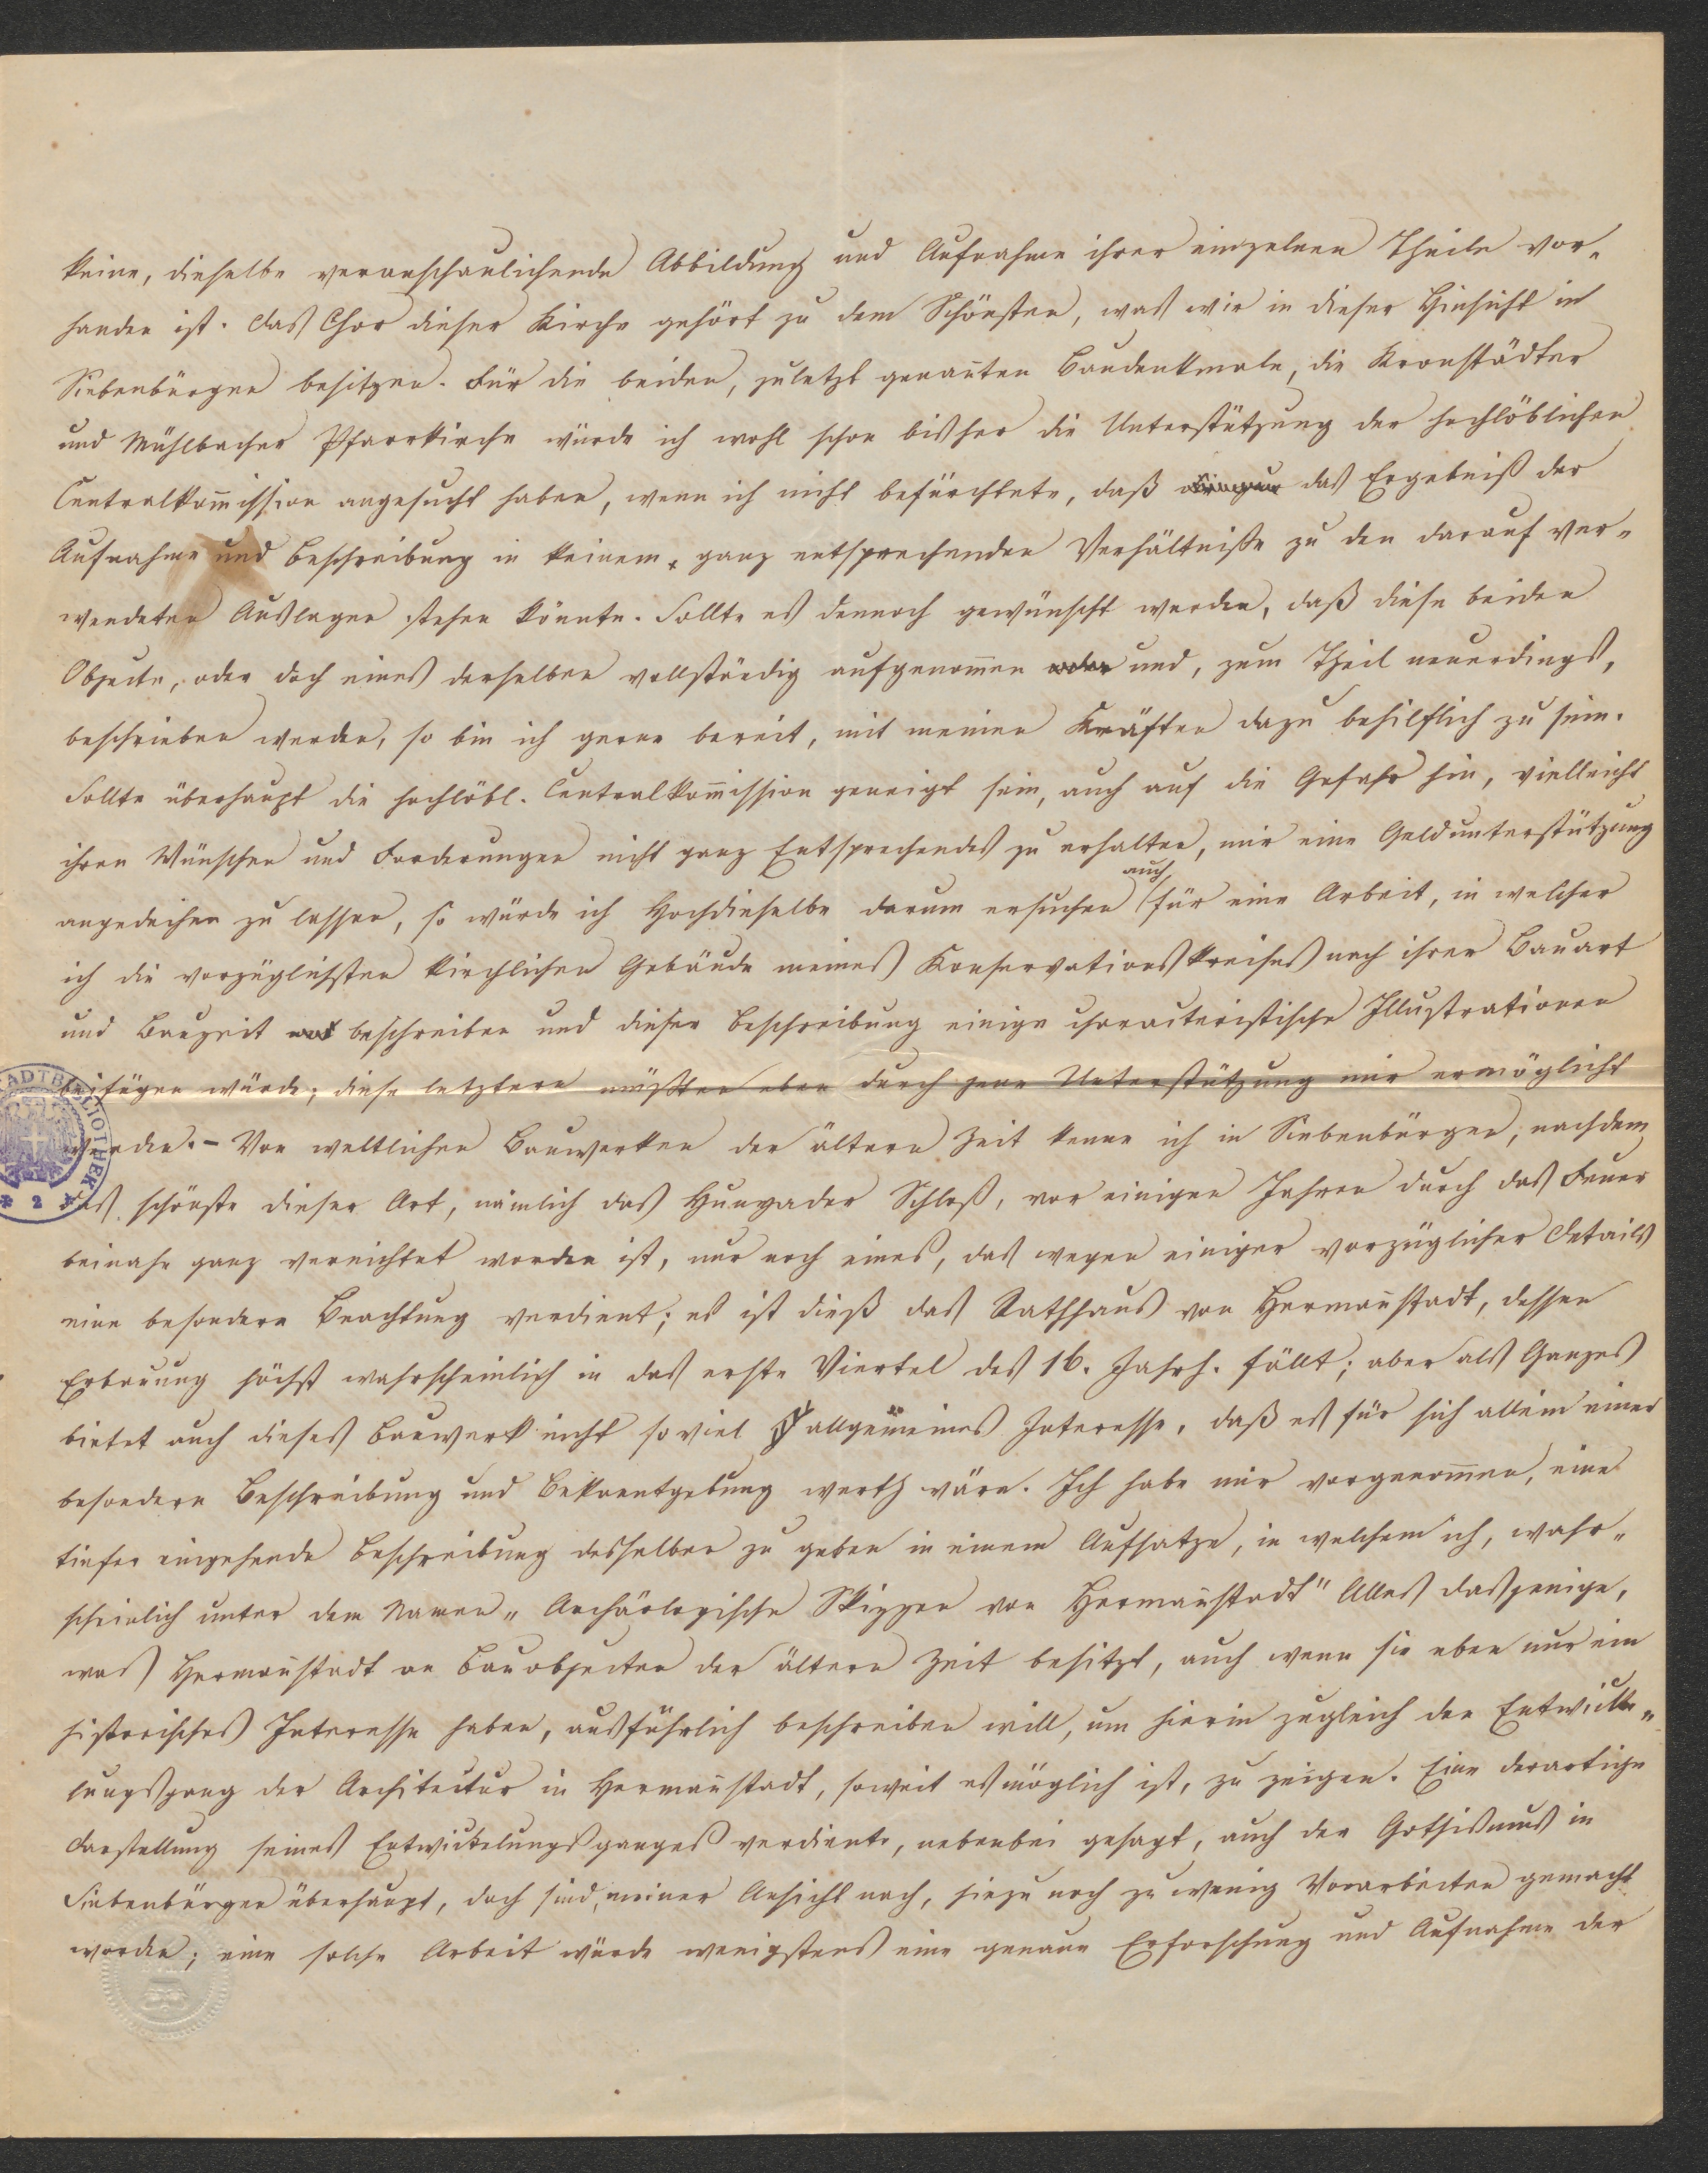 keine, dieselbe veranschaulichende Abbildung und Aufnahme ihrer einzelnen Theile vor„
handen ist. Das Chor dieser Kirche gehört zu dem Schönsten, was wir in dieser Hinsicht in
Siebenbürgen besitzen. Für die beiden, zuletzt genan̄ten Baudenkmale, die Kronstädter
und Mühlbacher Pfarrkirche würde ich wohl schon bisher die Unterstützung der hochlöblichen
Centralkom̄ission angesucht haben, wenn ich nicht befürchtete, daß das Ergebniß der
Aufnahme und Beschreibung in keinem, ganz entsprechenden Verhältniße zu den darauf ver„
wendeten Auslagen stehen könnte. Sollte es dennoch gewünscht werden, daß diese beiden
Objecte, oder doch eines derselben vollständig aufgenom̄en oder und, zum Theil neuerdings,
beschrieben werden, so bin ich gerne bereit, mit meinen Kräften dazu behilflich zu sein.
Sollte überhaupt die hochlöbl. Centralkom̄ission geneigt sein, auch auf die Gefahr hin, vielleicht
ihren Wünschen und Forderungen nicht ganz Entsprechendes zu erhalten, mir eine Geldunterstützung
angedeihen zu lassen, so würde ich Hochdieselbe darum ersuchen auch für eine Arbeit, in welcher
ich die vorzüglichsten kirchlichen Gebäude meines Konservationskreises nach ihrer Bauart
und Bauzeit beschreiben und dieser Beschreibung einige characteristische Illustrationen
beifügen würde; diese letztern müßten eben durch jene Unterstützung mir ermöglicht
werden. – Von weltlichen Bauwerken der ältern Zeit kenne ich in Siebenbürgen, nachdem
das schönste dieser Art, nämlich das Hunyader Schloß, vor einigen Jahren durch das Feuer
beinahe ganz vernichtet worden ist, nur noch eines, das wegen einiger vorzüglicher Details
eine besondere Beachtung verdient; es ist dieß das Rathhaus von Herman̄stadt, dessen
Erbauung höchst wahrscheinlich in das erste Viertel des 16. Jahrh. fällt; aber als Ganzes
bietet auch dieses Bauwerk nicht soviel allgemeines Interesse, daß es für sich allein einer
besondern Beschreibung und Bekanntgebung werth wäre. Ich habe mir vorgenom̄en, eine
tiefer eingehende Beschreibung desselben zu geben in einem Aufsatze, in welchem ich, wahr„
scheinlich unter dem Namen „Archäologische Skizzen von Herman̄stadt" Alles dasjenige,
was Herman̄stadt an Bauobjecten der ältern Zeit besitzt, auch wenn sie eben nur ein
historisches Interesse haben, ausführlich beschreiben will, um hierin zugleich den Entwicke„
lungsgang der Architectur in Herman̄stadt, soweit es möglich ist, zu zeigen. Eine derartige
Darstellung seines Entwickelungsganges verdiente, nebenbei gesagt, auch der Gothismus in
Siebenbürgen überhaupt, doch sind, meiner Ansicht nach, hiezu noch zu wenig Vorarbeiten gemacht
worden; eine solche Arbeit würde wenigstens eine genaue Erforschung und Aufnahme der
STADTBIBLIOTHEK
* 2 *